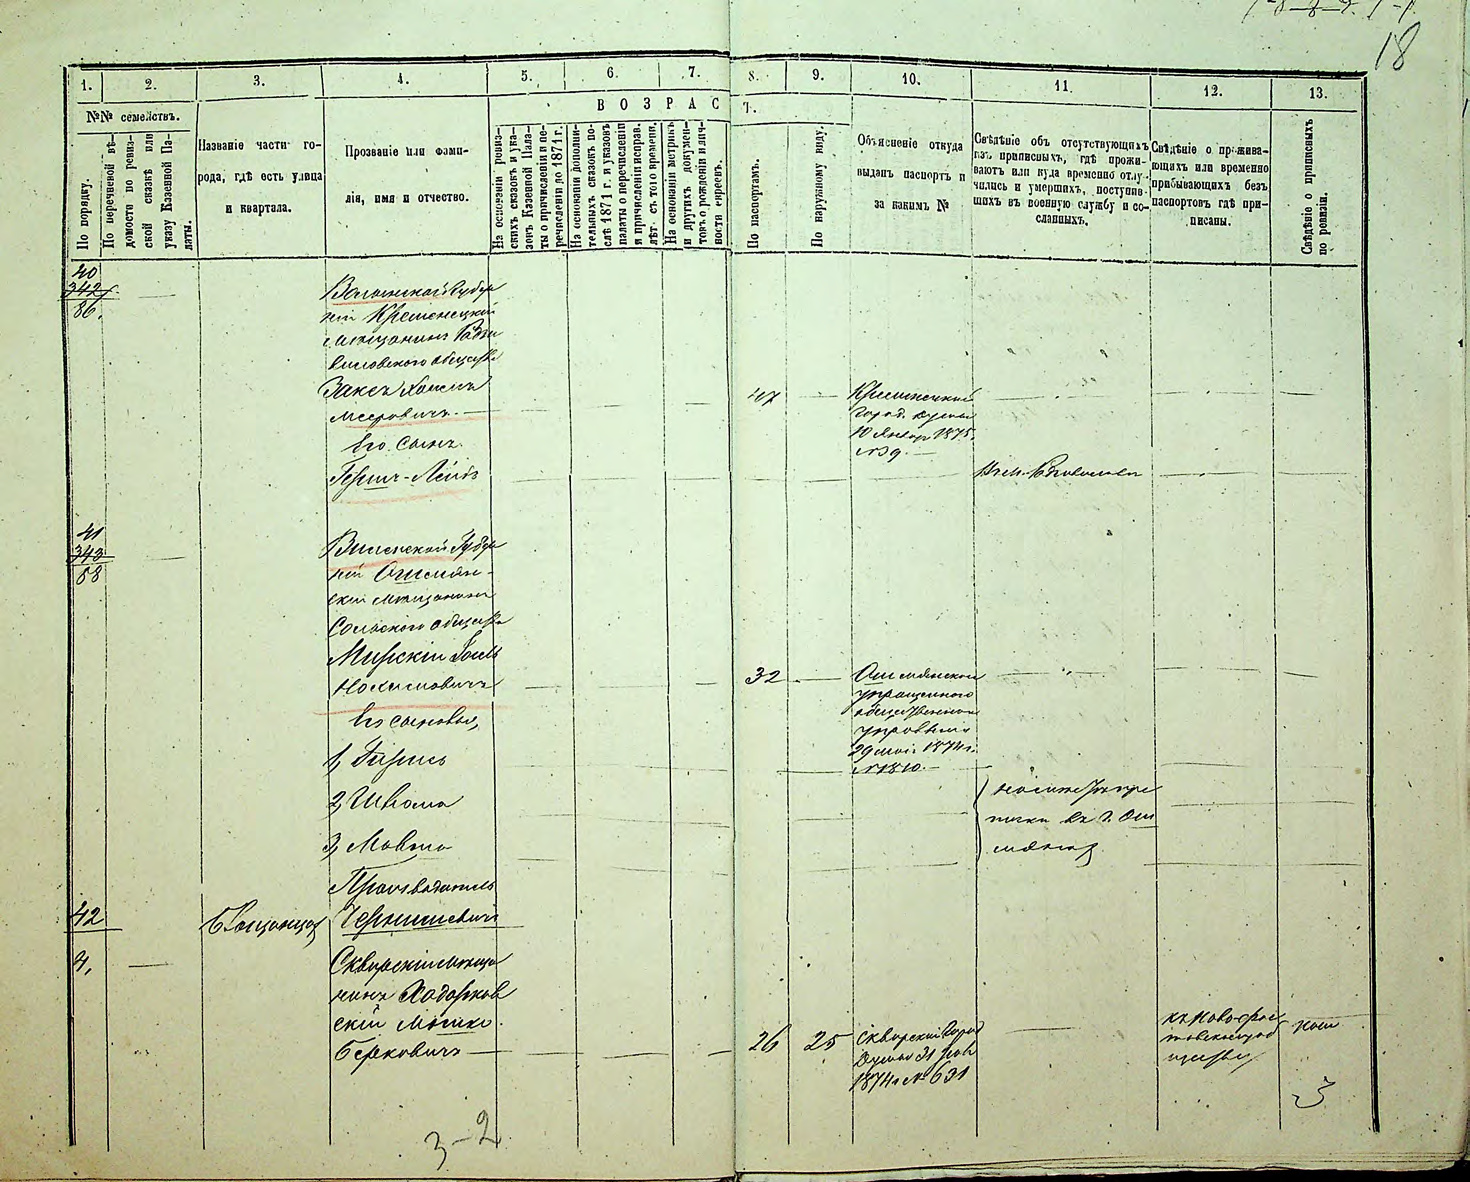 18
1. 2. 3. 4. 5. 6. 7. 8. 9. 10. 11. 12. 13.
№№ семействъ.
По порядку.
По перечневой вѣ-
домости по ревиз-
ской сказкѣ или
указу Казенной Па-
латы.
Названіе части го-
рода, гдѣ есть улица
и квартала.
Прозваніе или фами-
лія, имя и отчество.
ВОЗРАСТ.
На основаніи ревиз-
скихъ сказокъ и ука-
зокъ Казенной Пала-
ты о причисленіи и пе-
речисленіи до 1871 г.
На основаніи дополни-
тельныхъ сказокъ по-
слѣ 1871 г. и указовъ
палаты о перечисленіи
и причисленіи исправ.
лѣт. съ того времени.
На основаніи метрикъ
и другихъ докумен-
товъ о рожденіи и лич-
ности евреевъ.
По паспортамъ.
По наружному виду.
Объясненіе откуда
выданъ паспортъ и
за какимъ №
Свѣдѣніе объ отсутствующихъ
изъ приписныхъ, гдѣ прожи-
ваютъ или куда временно отлу-
чились и умершихъ, поступив-
шихъ въ военную службу и со-
сланныхъ.
Свѣдѣніе о прожива-
ющихъ или временно
прибывающихъ безъ
паспортовъ гдѣ при-
писаны.
Свѣдѣніе о приписныхъ
по ревизіи.
40
342
86.
Волынской Губер
ніи Кременецкій
мѣщанинъ Радзи
виловского общества
Заксъ Хаимъ
Мееровичъ
47
Кременецкой
Город. Думы
10 Январ 1875.
№ 39.
Его сынъ
Гершъ-Лейбъ
41
343
88
Виленской Губер
ніи Ошмян-
скій мѣщанинъ
Сольского общества
Мирскій
32
Ошмянскаго
упрощенного
общественнаго
управленія
29 мая 1874 г.
№ 1810.
Его сыновья,
1,
2,
3, Мовша
въ г. Ош
мянахъ
Производитель
Чернишевичъ
42
4,
Сквирскій мѣща
нинъ Ходорков
скій Мошко
Берковичъ
26 25
Сквирской Город
Думы 31
1874 г. № 631
3-2